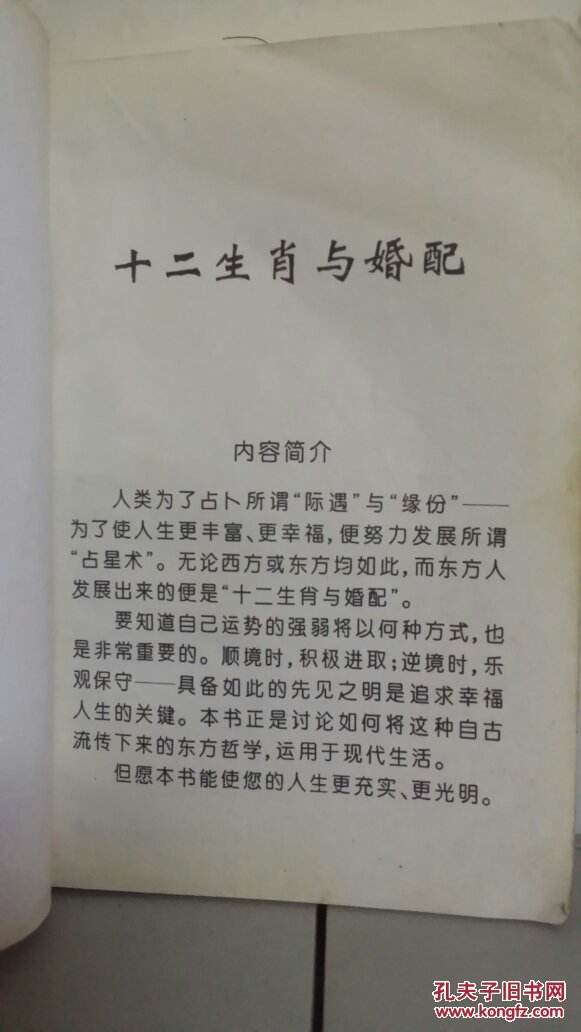 十二生肖与婚配
内容简介
人类为了占卜所谓“际遇”与“缘份”——
为了使人生更丰富、更幸福，便努力发展所谓
“占星术”。无论西方或东方均如此，而东方人
发展出来的便是“十二生肖与婚配”。
要知道自己运势的强弱将以何种方式，也
是非常重要的。顺境时，积极进取；逆境时，乐
观保守——具备如此的先见之明是追求幸福
人生的关键。本书正是讨论如何将这种自古
流传下来的东方哲学，运用于现代生活。
但愿本书能使您的人生更充实、更光明。
孔夫子旧书网
www.kongfz.com